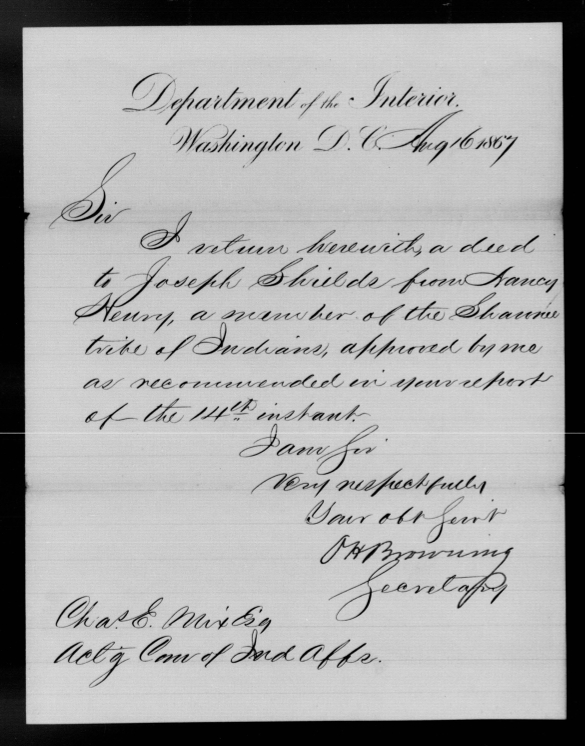 Department of the Interior.
Washington D. C. Aug 16 1867
Sir
I return herewith, a deed
to Joseph Shields from Nancy
Henry, a member of the Shawnee
tribe of Indians, approved by me
as recommended in your report
of the 14th instant.
I am Sir
Very respectfully
Your obt Servt
O H Browning
Secretary
Chas. E. Mix Esq
Act'g Com of Ind Affs.